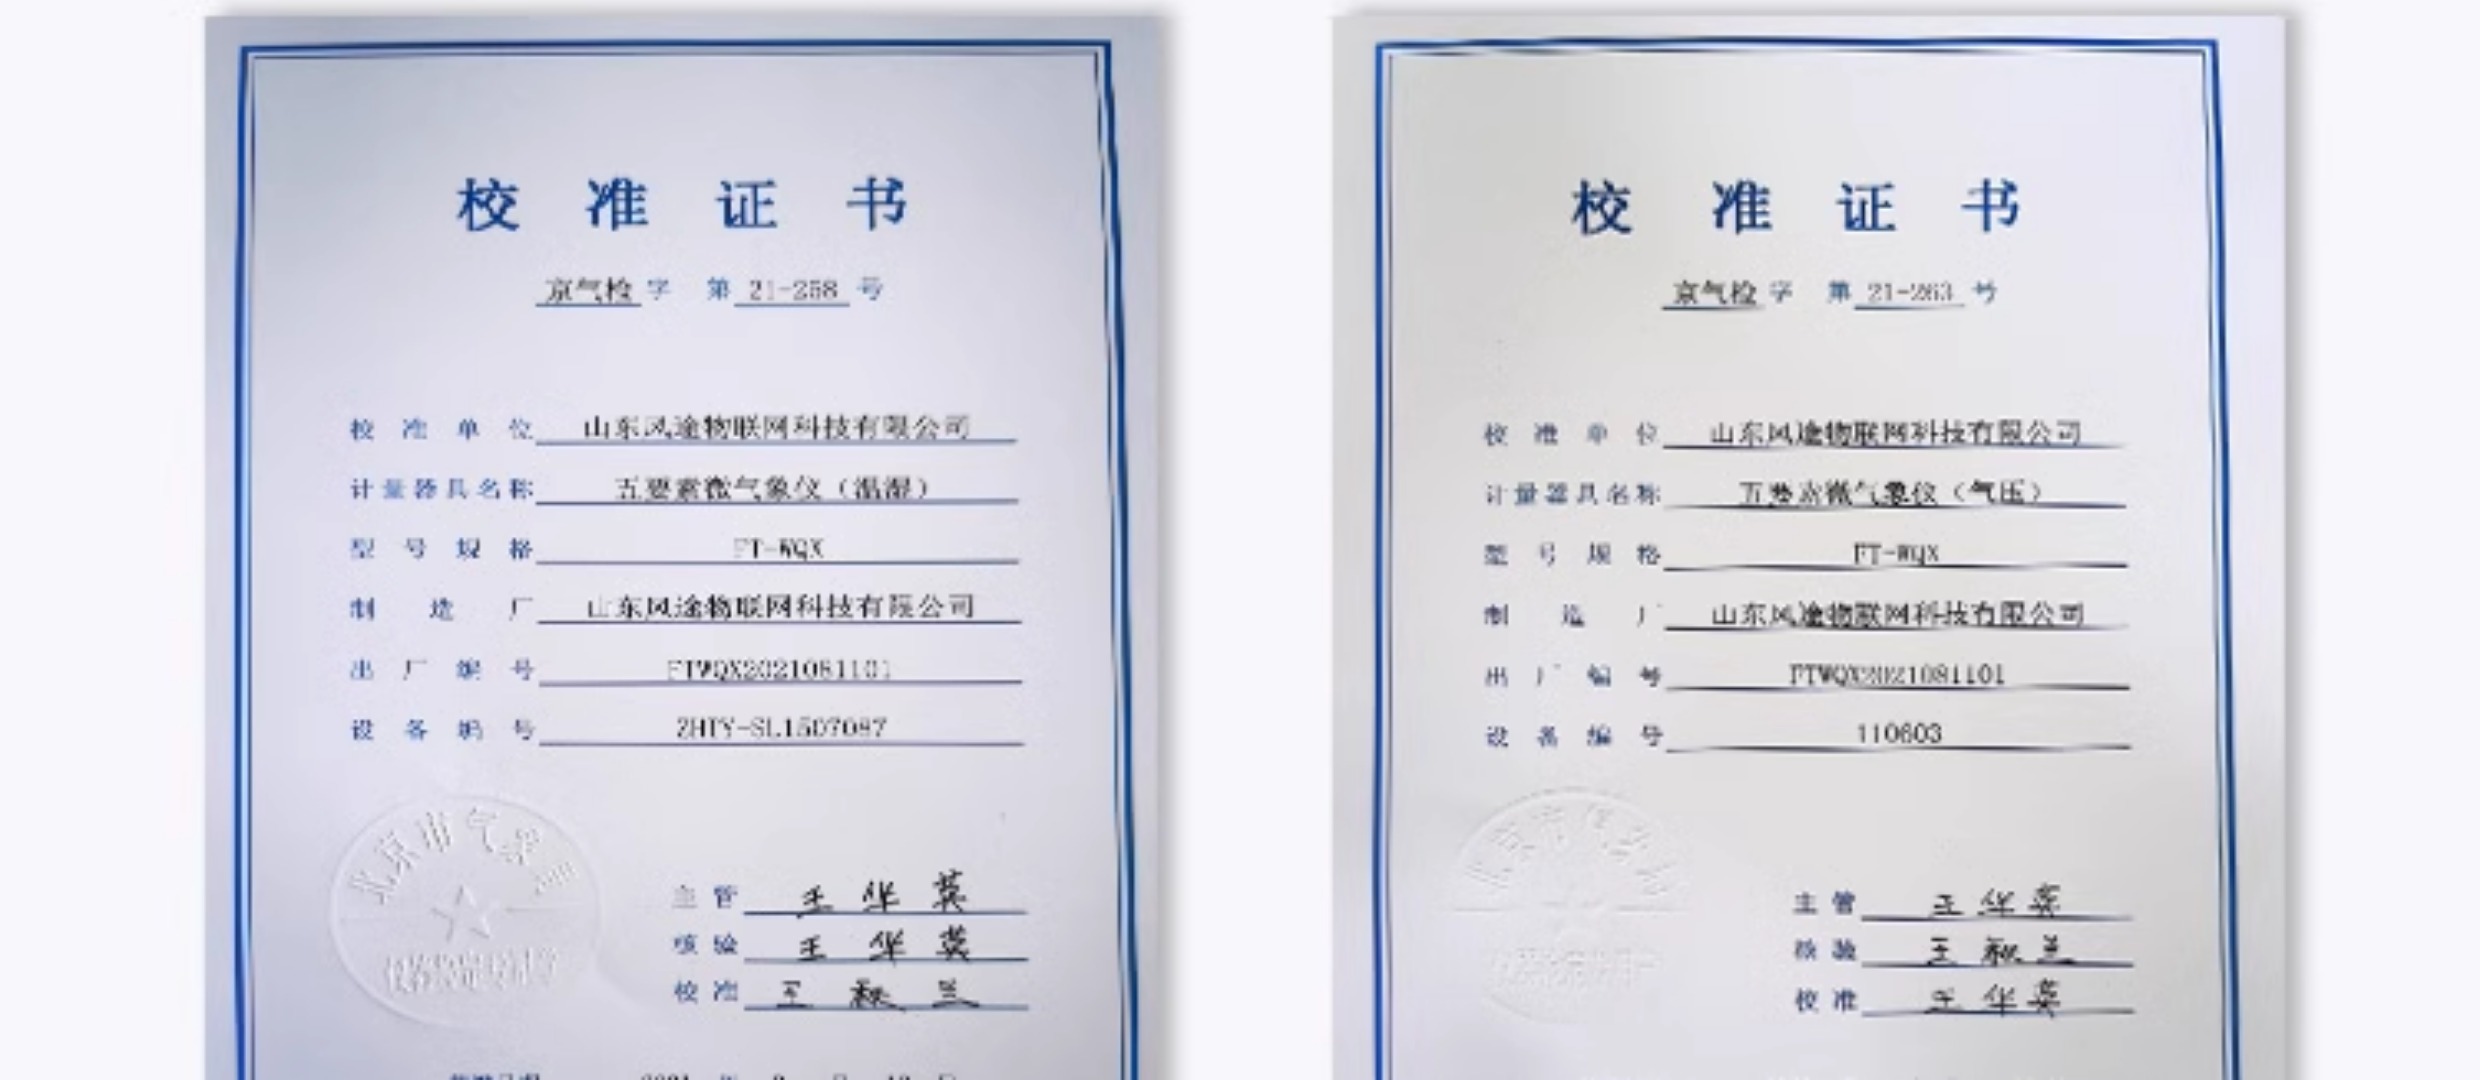 校准证书
京气检字 第21-258号
校准单位 山东风途物联网科技有限公司
计量器具名称 五要素微气象仪（温湿）
型号规格 FT-WQX
制造厂 山东风途物联网科技有限公司
出厂编号 FTWQX2021081101
设备编号 ZHTY-SL1507087
北京市气象局
主管 王华英
核验 王华英
校准 王秋兰
校准证书
京气检字 第21-263号
校准单位 山东风途物联网科技有限公司
计量器具名称 五要素微气象仪（气压）
型号规格 FT-WQX
制造厂 山东风途物联网科技有限公司
出厂编号 FTWQX2021081101
设备编号 110603
主管 王华英
核验 王秋兰
校准 王华英